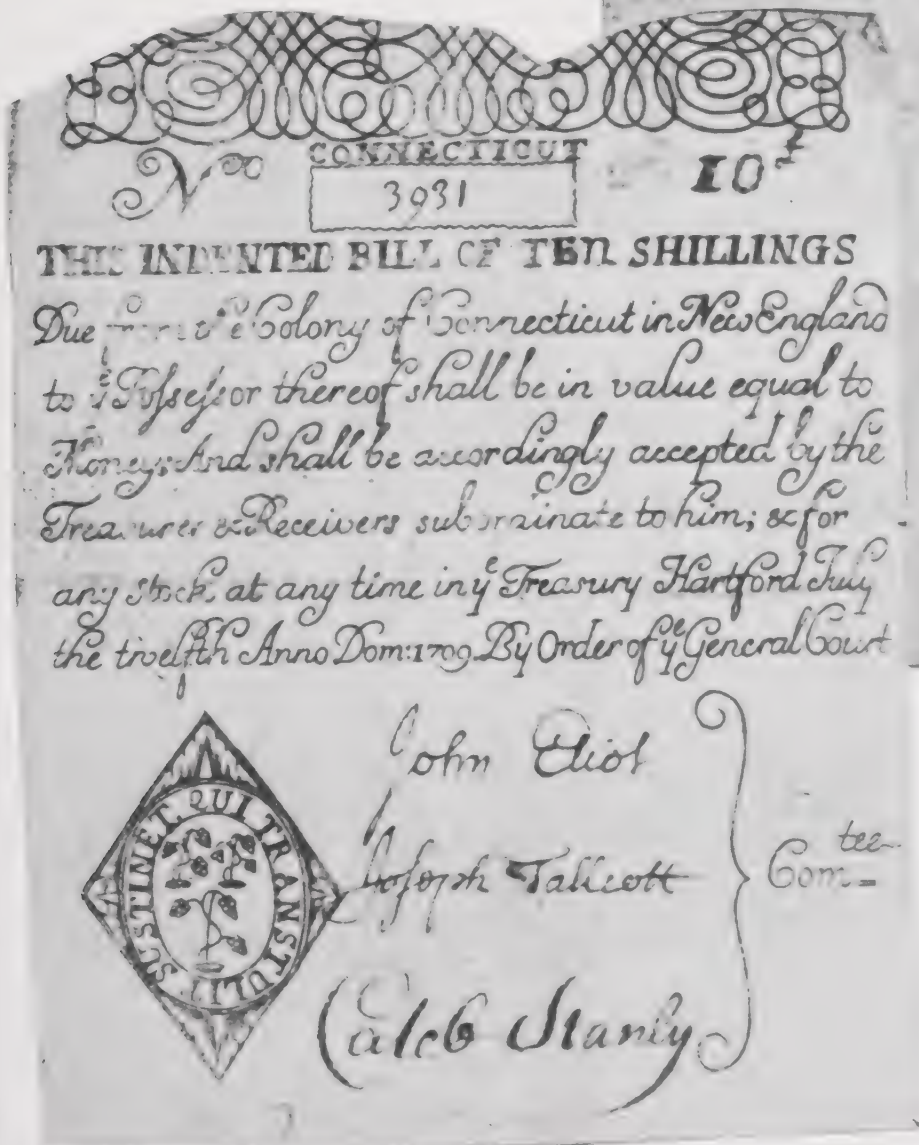 CONNECTICUT
No 3931 10s
THIS INDENTED BILL OF TEN SHILLINGS
Due from the Colony of Connecticut in New England
to ye Possessor thereof shall be in value equal to
Money & And shall be accordingly accepted by the
Treasurer & Receivers subordinate to him; & for
any stock at any time in ye Treasury Hartford July
the twelfth Anno Dom: 1709 By Order of ye General Court
SUSTINET QUI TRANSTULIT
John Eliot
Joseph Tallcott
Comtee
Caleb Stanly